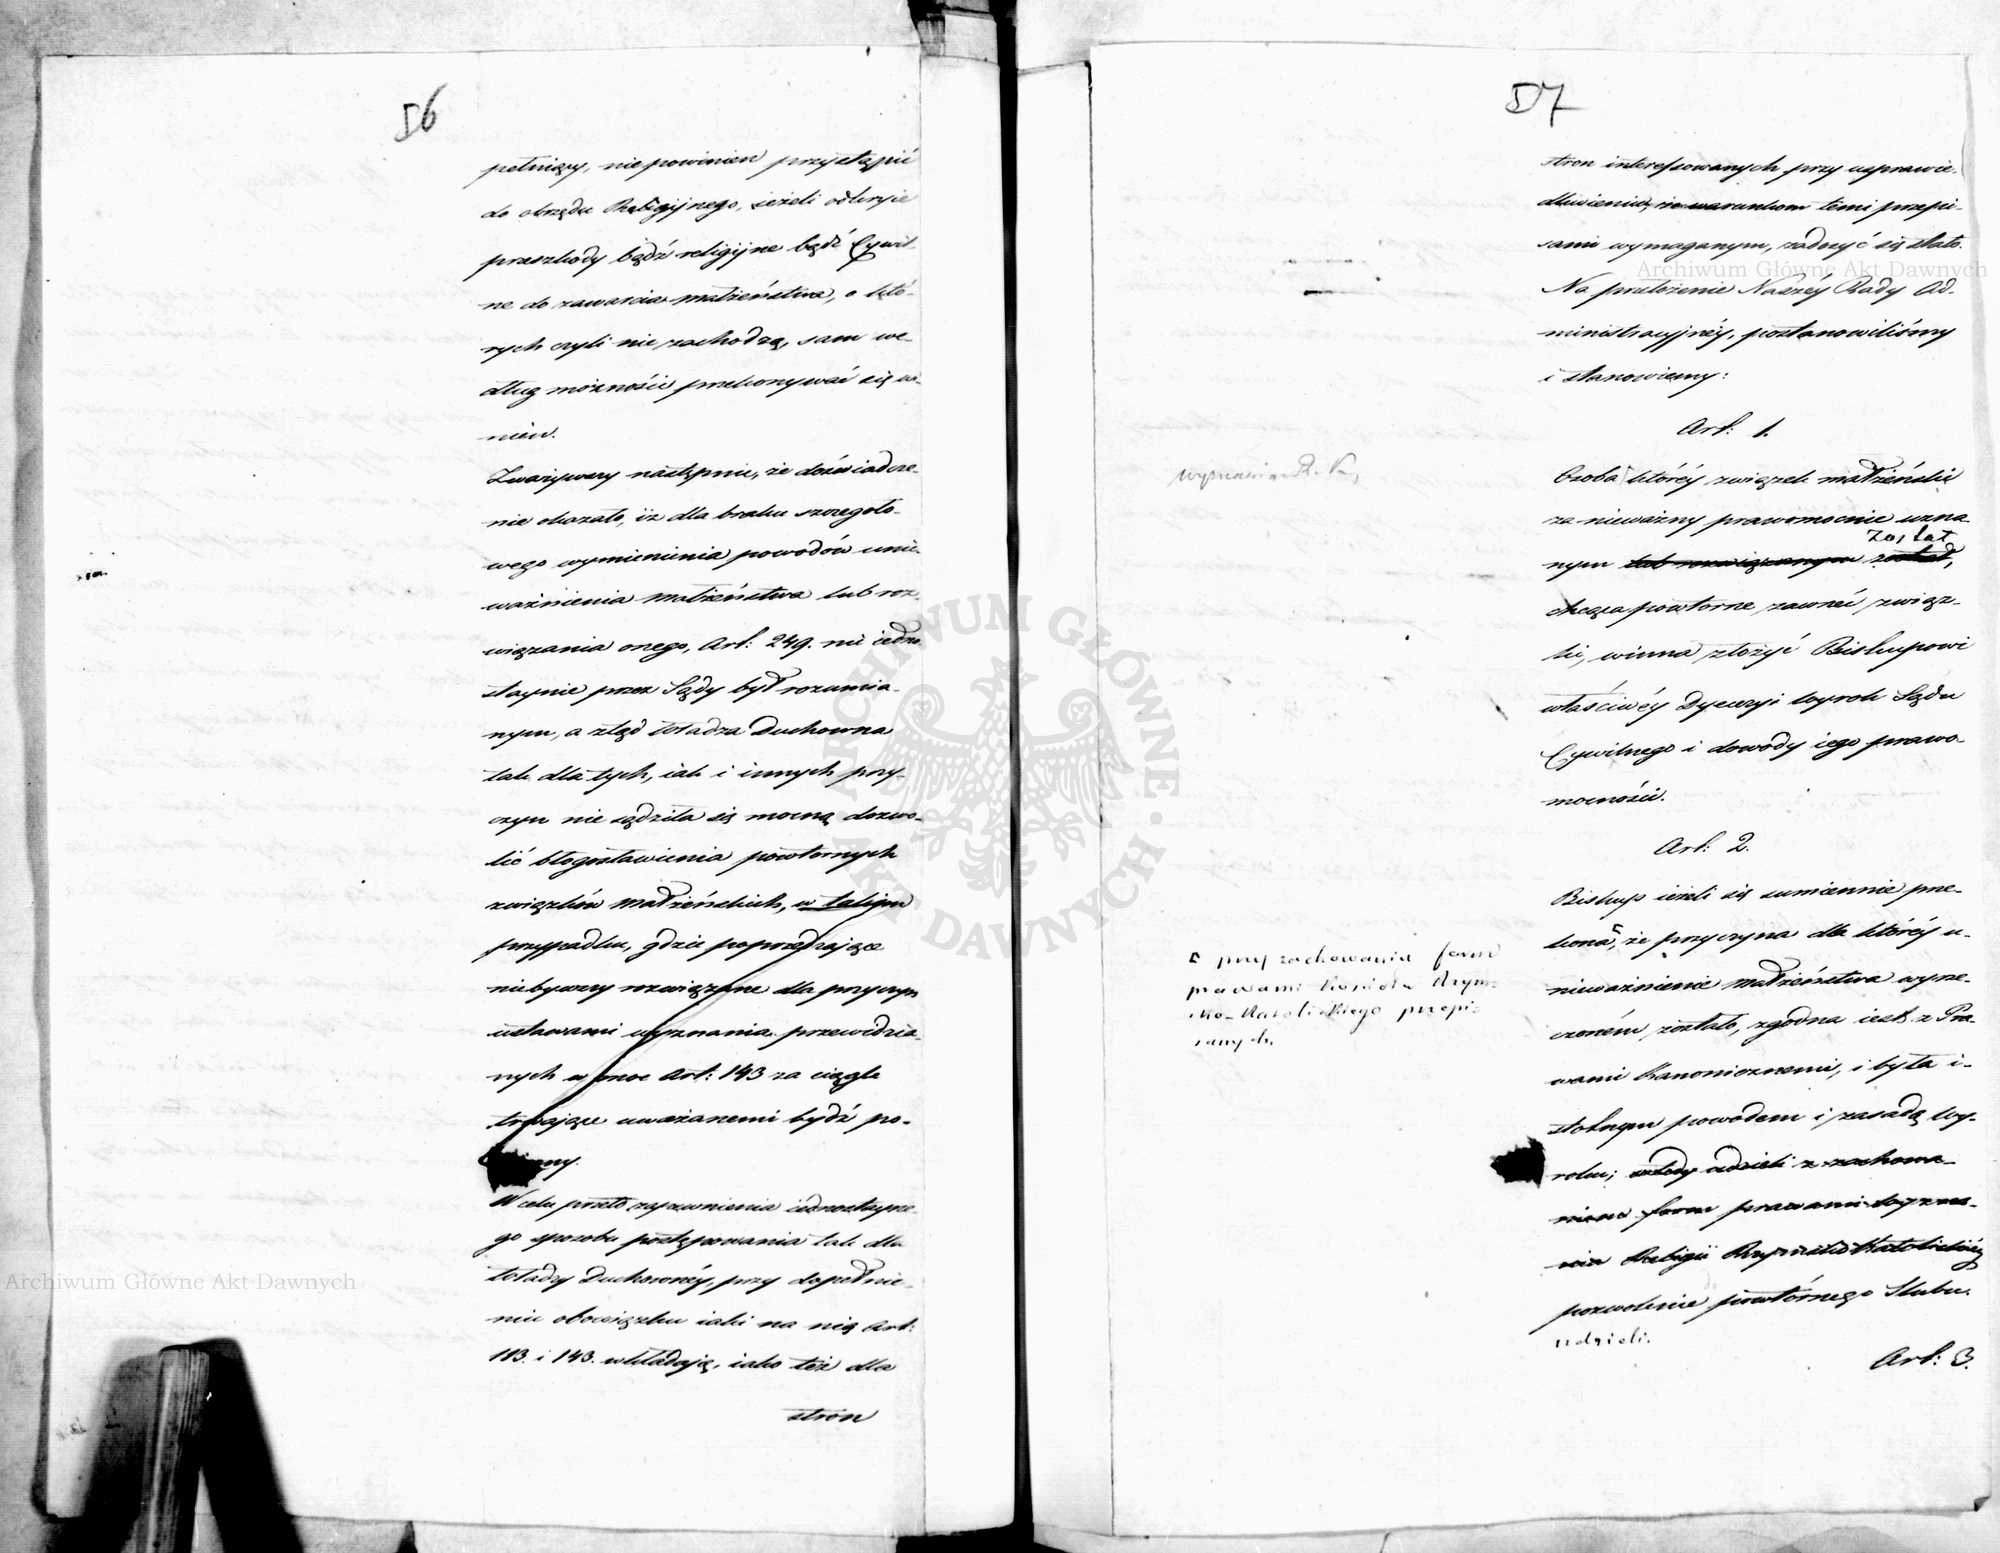 56
pełniący, nie powinien przystąpić
do obrzędu Religijnego, ieżeli odkryie
przeszkody bądź religijne bądź Cywil-
ne do zawarcia małżeństwa, o któ-
rych czyli nie zachodzą, sam we-
dług możności przekonywać się wi-
nien.
Zważywszy następnie, że doświadcze-
nie okazało, iż dla braku szczegóło-
wego wymienienia powodów unie-
ważnienia małżeństwa lub roz-
wiązania onego, Art: 249. nie iedno
staynie przez Sądy był rozumia-
nym, a ztąd Władza Duchowna
tak dla tych, iak i innych przy-
czyn nie sądziła się mocną dozwo-
lić błogosławienia powtórnych
związków małżeńskich, w takim
przypadku, gdzie poprzedzaiące
niebywszy rozwiązane dla przyczyn
ustawami wyznania przewidzia-
nych w moc Art: 143 za ciągle
trwaiące uważanemi bydź po-
winny.
W celu przeto zapewnienia iednostayne-
go sposobu postępowania tak dla
Władzy Duchownéy, przy dopełnie-
niu obowiązku iaki na nią Art:
113. i 143. wkładaią, iako też dla
stron
57
stron interessowanych przy usprawie-
dliwieniu, że warunkom temi przepi-
sami wymaganym, zadosyć się stało.
Na przełożenie Naszéy Rady Ad-
ministracyjnéy, postanowiliśmy
i stanowiemy:
Art: 1.
Osoba któréy związek małżeński
za nieważny prawomocnie uzna
został
nym lub rozwiązanym został,
chcąca powtórne zawrzeć związ-
ki, winna złożyć Biskupowi
właściwéy Dyecezyi wyrok Sądu
Cywilnego i dowody iego prawo
mocności.
Art: 2.
Biskup ieżeli się sumiennie prze-
kona, że przyczyna dla któréy u-
nieważnienie małżeństwa wyrze-
czoném zostało, zgodna iest z Pra-
wami Kanonicznemi, i była i-
stotnym powodem i zasadą wy-
roku; wtedy udzieli z zachowa-
niem form prawami wyzna-
nia Religii Rzymsko Katolickiéy
pozwolenie powtórnego Ślubu.
udzieli.
Art: 3.
wyznania R. K.
przy zachowaniu form
prawami Kościoła Rzym-
sko-Katolickiego przepi-
sanych.
Archiwum Główne Akt Dawnych
Archiwum Główne Akt Dawnych
ARCHIWUM GŁÓWNE AKT DAWNYCH